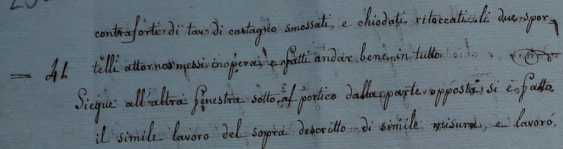 contraforti di tav. di castagno smossati, e chiodati, ritoccati li due spor=
= 41 telli attorno messi in opera, e fatti andar bene in tutto
Siegue all'altra finestra sotto al portico dalla parte opposta, si è fatto
il simile lavoro del sopra descritto di simile misura, e lavoro.